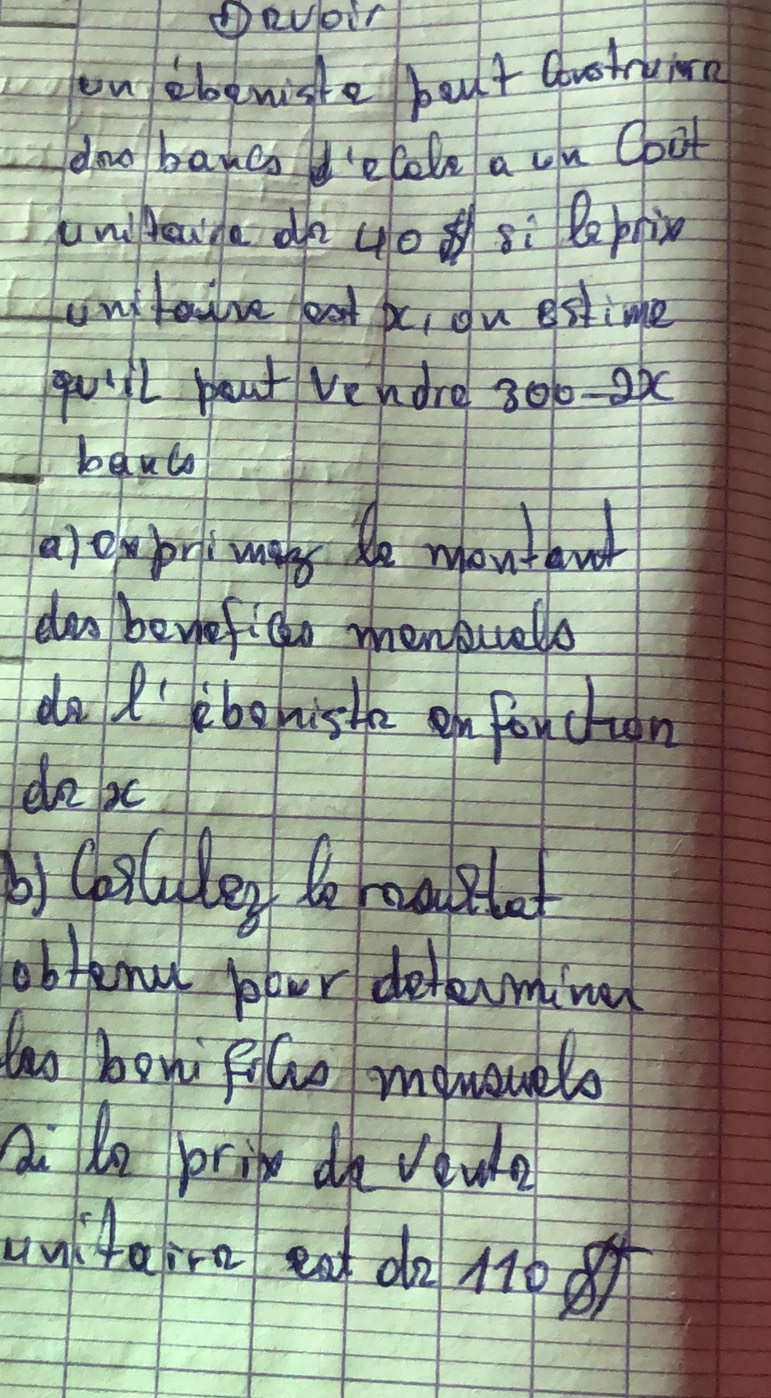 Devoir
un ébeniste peut Construire
des bancs d'ecole a un Coût
unitaire de 40 $ si le prix
unitaire est x, on estime
qu'il peut vendre 300-2x
bancs
a) exprimez le montant
des benefices mensuels
de l'ébeniste en fonction
de x
b) Calculez le resultat
obtenu pour determiner
les benifices mensuels
si le prix de vente
unitaire est de 110 $